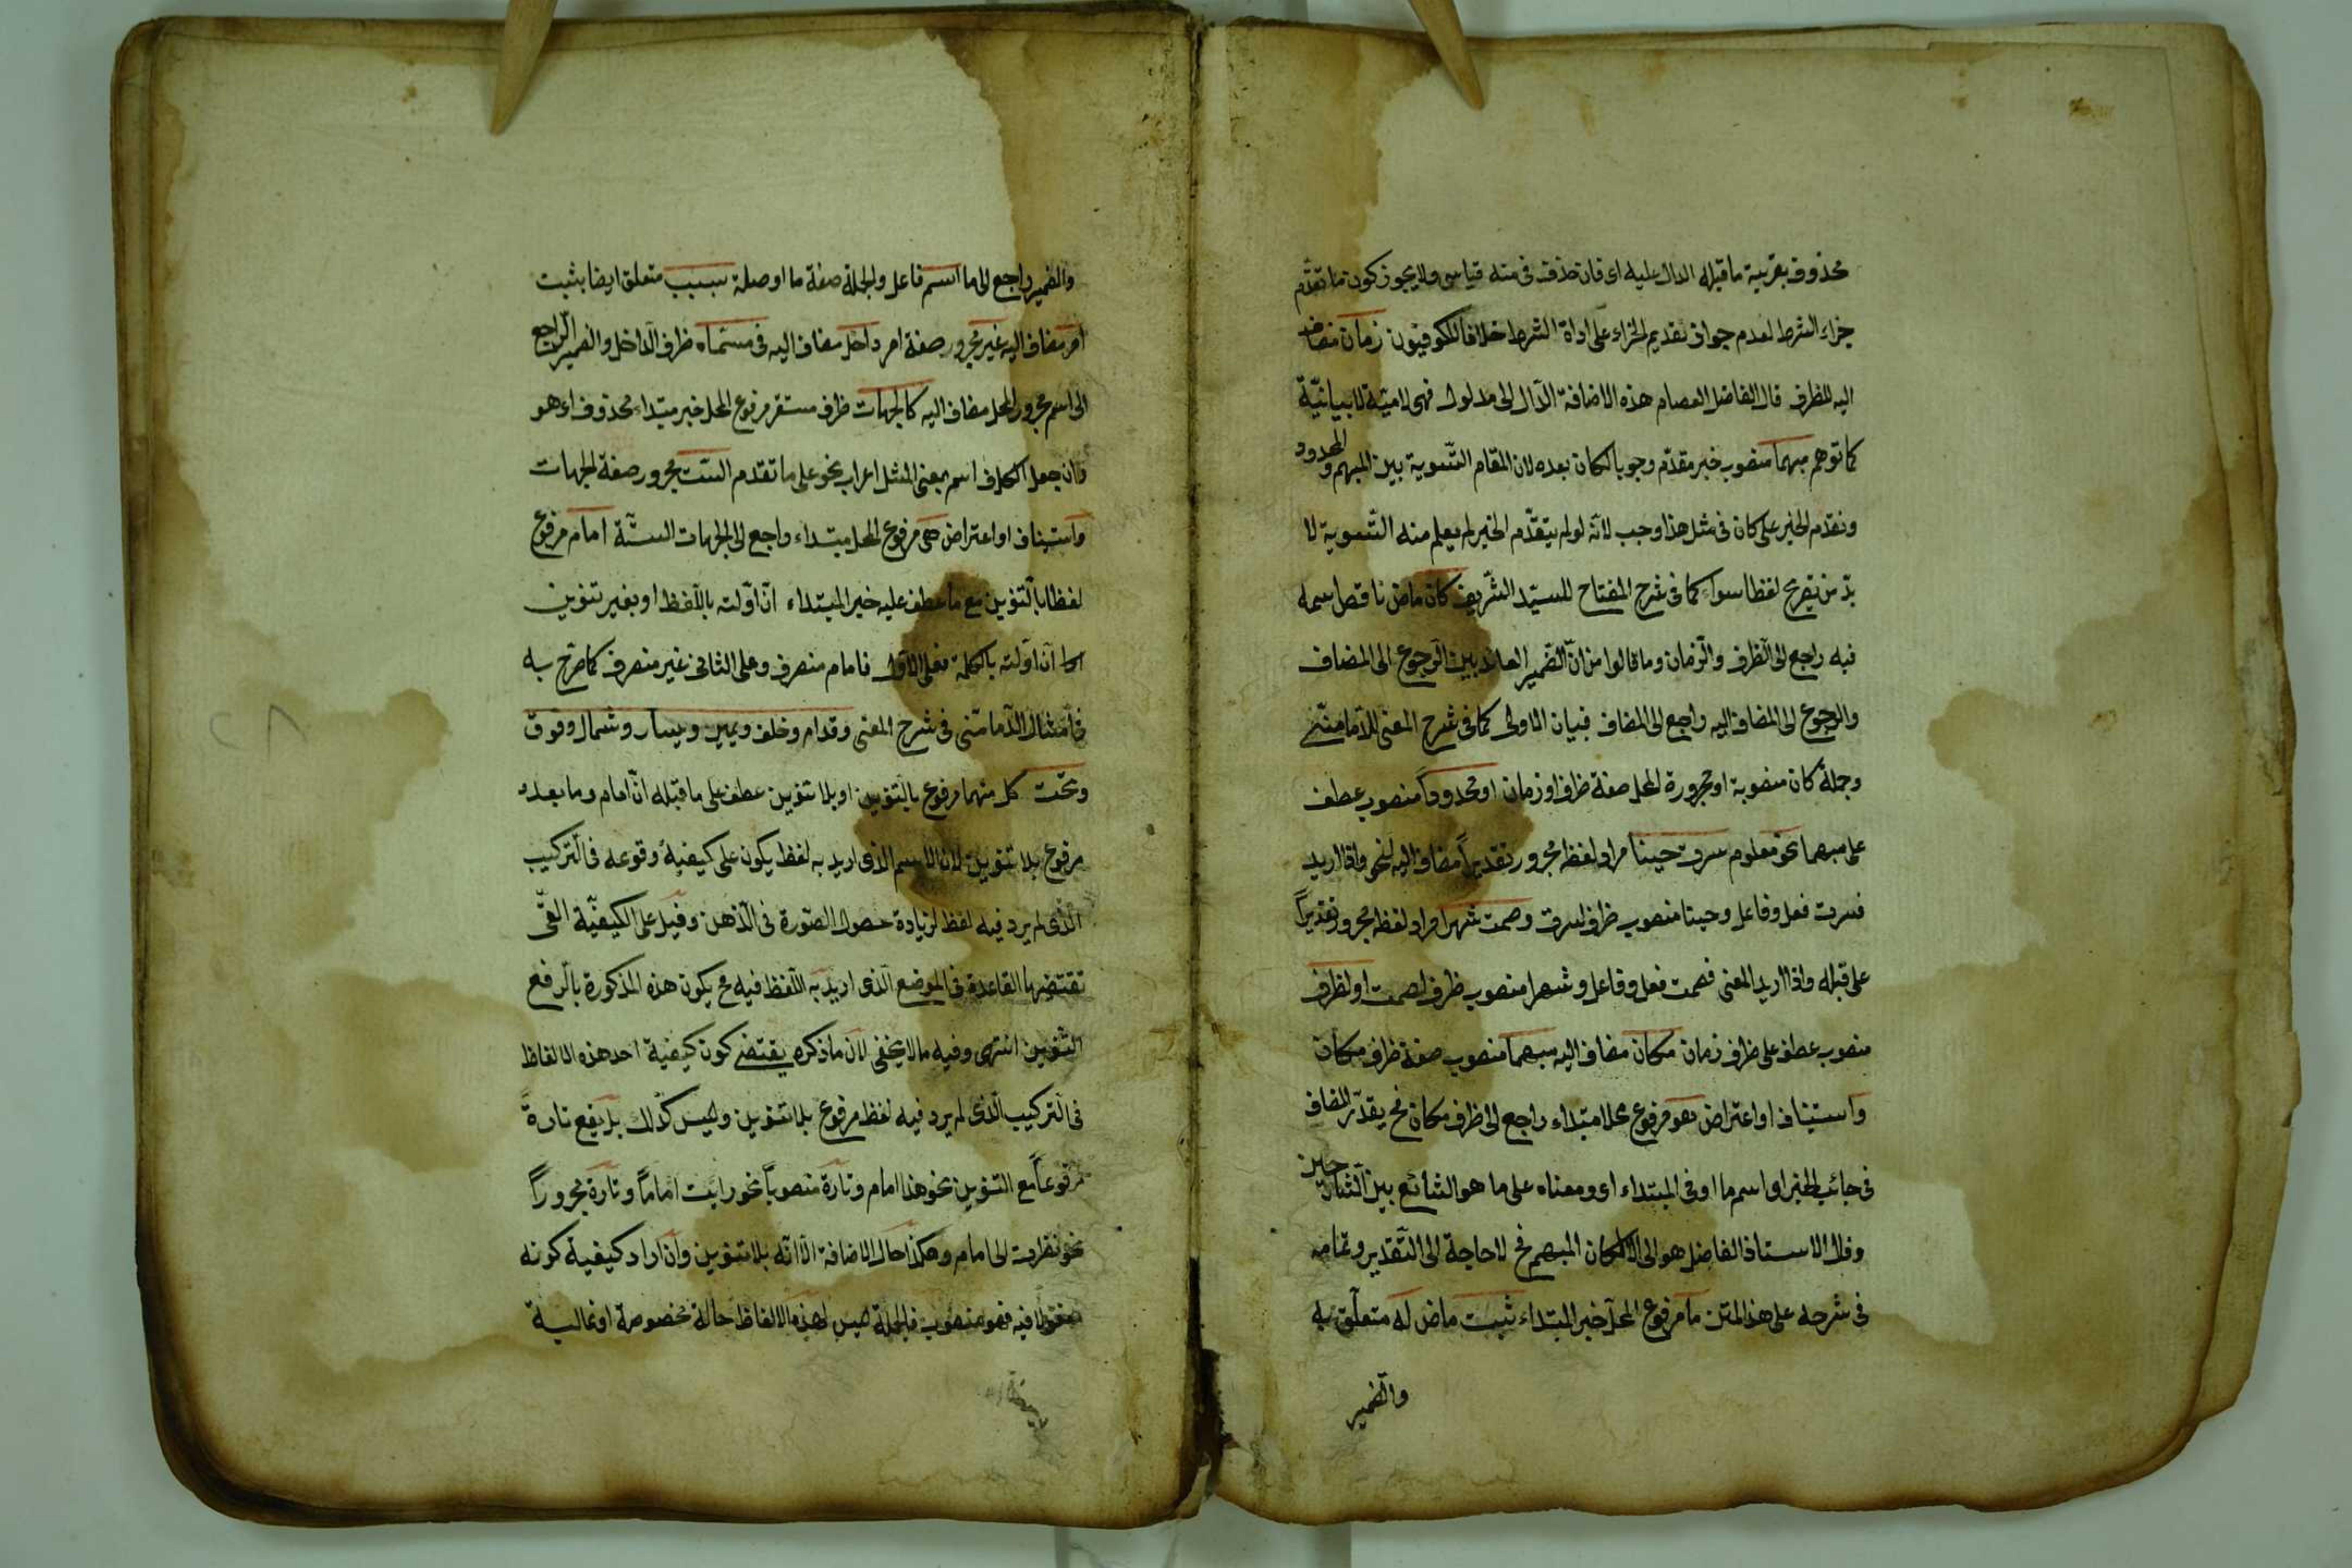 محذوف بقرينة ما قبله الدال عليه اى فان حذف فى منه قياسى ولا يجوز كون ما تقدم
جزاء الشرط لعدم جواز تقديم الجزاء على اداة الشرط خلافا للكوفيون زمان مضاف
اليه للظرف قال الفاضل العصام هذه الاضافة الدال الى مدلول فهى لامية لا بيانية
كما توهم مبهما منصوب خبر مقدم وجوبا لكان بعده لان المقام التسوية بين المبهم والمحدود
وتقدم الخبر على كان فى مثل هذا وجب لانه لو لم يتقدم الخبر لم يعلم منه التسوية لا
بد من تصريح لفظ سواء كما فى شرح المفتاح للسيد الشريف كان ماض ناقص اسمه
فيه راجع الى الظرف والزمان وما قالوا من ان الضمير العائد بين الرجوع الى المضاف
والرجوع الى المضاف اليه راجع الى المضاف فبيان الاولى كما فى شرح المغنى للدمامينى
وجملة كان منصوبة او مجرورة المحل صفة ظرف او زمان او محدودا منصوب عطف
على مبهما نحو معلوم سرت حينا مراد لفظه مجرور تقديرا مضاف اليه لنحو واذا اريد
فسرت فعل وفاعل وحينا منصوب ظرف لسرت وصمت شهرا مراد لفظه مجرور تقديرا
على قبله واذا اريد المعنى فصمت فعل وفاعل وشهرا منصوب ظرف لصمت او لظرف
منصوب عطف على ظرف زمان مكان مضاف اليه مبهما منصوب صفة ظرف مكان
واستيناف او اعتراض هو مرفوع محلا مبتداء راجع الى ظرف مكان فح يقدر المضاف
فى جانب الخبر او اسم ما او فى المبتداء اى ومعناه على ما هو الشائع بين الشارحين
وقال الاستاذ الفاضل هو الى المكان المبهم فح لا حاجة الى التقدير وتمامه
فى شرحه على هذا المتن ما مرفوع المحل خبر المبتداء ثبت ماض له متعلق به
والضمير
والضمير راجع الى ما اسم فاعل والجملة صفة ما او صلة بسبب متعلق ايضا بثبت
امر مضاف اليه غير مجرور صفة امر داخل مضاف اليه فى مسماه ظرف الداخل والضمير الراجع
الى اسم مجرور المحل مضاف اليه كالجهات ظرف مستقر مرفوع المحل خبر مبتداء محذوف اى هو
وان جعل الكاف اسم بمعنى المثل اعراب نحو على ما تقدم الست مجرور صفة الجهات
واستيناف او اعتراض هى مرفوع المحل مبتداء راجع الى الجهات الستة امام مرفوع
لفظا بالتنوين مع ما عطف عليه خبر المبتداء ان اولته باللفظ او بغير تنوين
ان اولته بالكلمة فعلى الاول فامام منصرف وعلى الثانى غير منصرف كما صرح به
فى امثال الدمامينى فى شرح المغنى وقدام وخلف ويمين ويسار وشمال وفوق
وتحت كل منهما مرفوع بالتنوين او بلا تنوين عطف على ما قبله ان امام وما بعده
مرفوع بلا تنوين لان الاسم الذى اريد به لفظ يكون على كيفية وقوعه فى التركيب
الذى لم يرد فيه لفظ لزيادة حصول الصورة فى الذهن وقيل على الكيفية التى
تقتضيها القاعدة فى الموضع الذى اريد به اللفظ فيه فح يكون هذه المذكورة بالرفع
التنوين انتهى وفيه ما لا يخفى لان ما ذكره يقتضى كون كيفية احد هذه الالفاظ
فى التركيب الذى لم يرد فيه لفظ مرفوع بلا تنوين وليس كذلك بل يقع تارة
مرفوعا مع التنوين نحو هذا امام وتارة منصوبا نحو رايت اماما وتارة مجرورا
نحو نظرت الى امام وهكذا حال الاضافة الا انه بلا تنوين وان اراد كيفية كونه
مفعولا فيه فهو منصوب فالجملة ليس لهذه الالفاظ حالة مخصوصة او غالبة